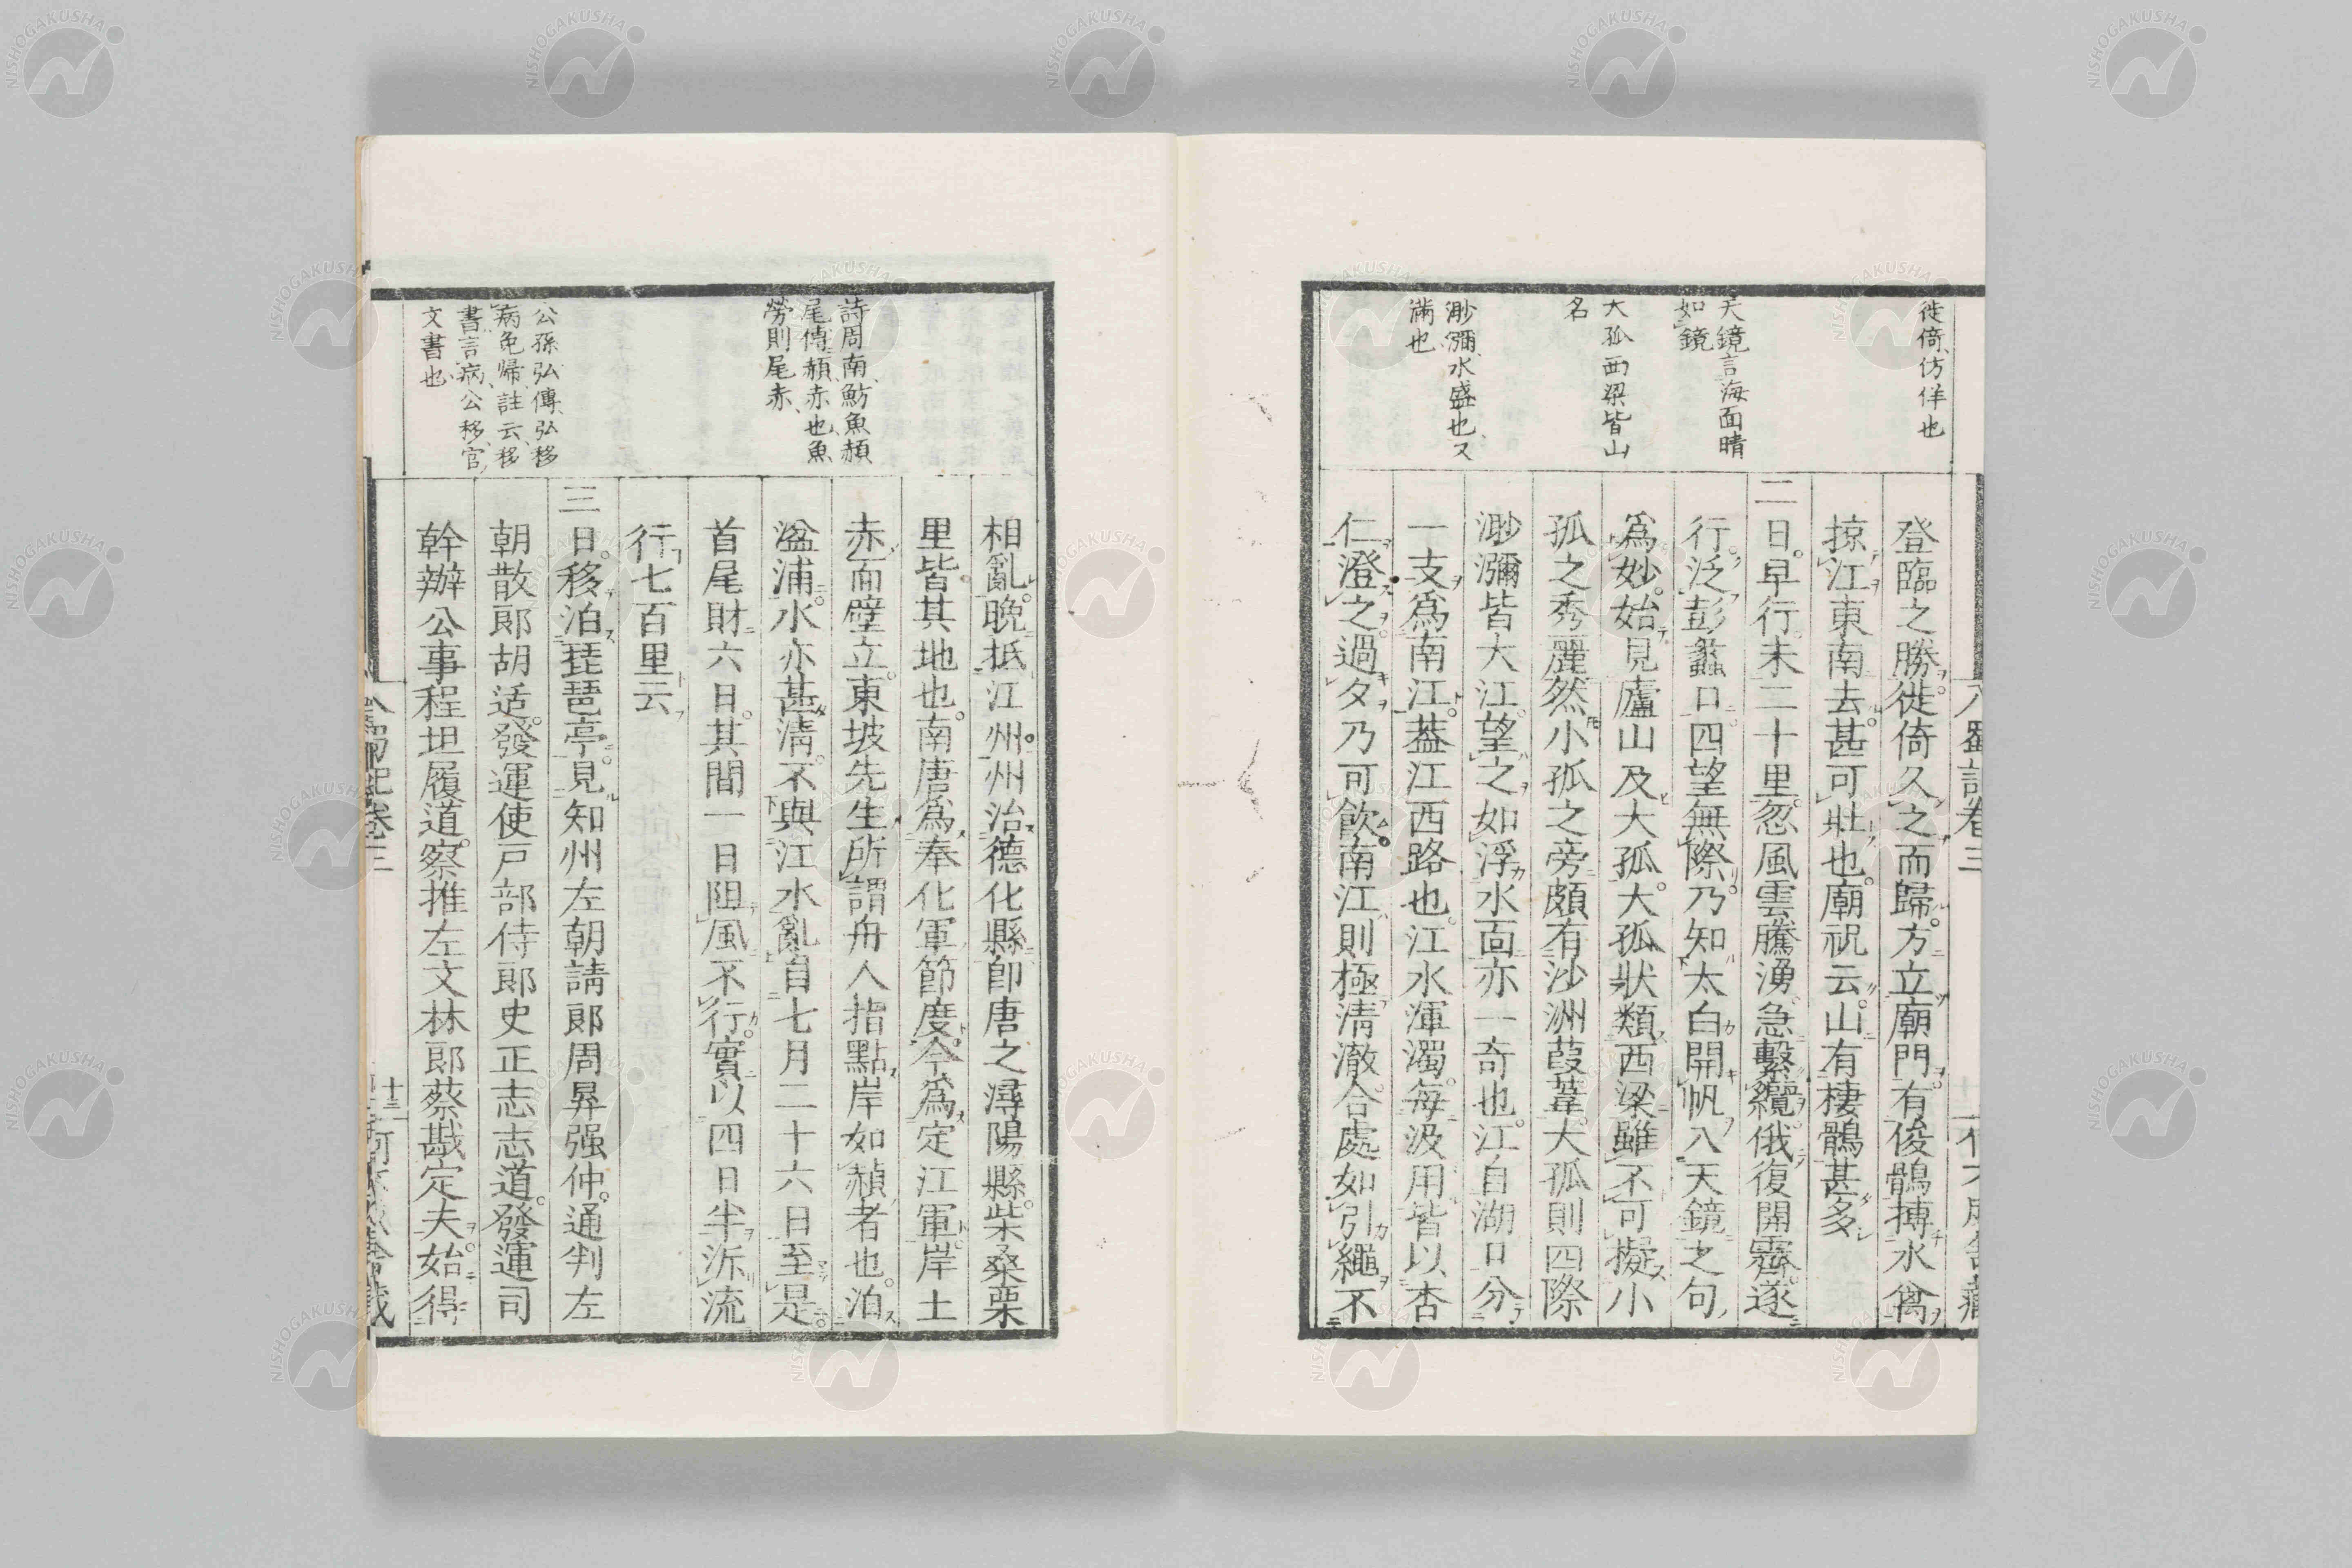 徙倚、彷徉也
天鏡言海面晴
如鏡
大孤西梁皆山
名
渺瀰、水盛也、又
滿也
登臨之勝。徙倚久之而歸。方立廟門。有俊鶻搏水禽
掠江東南去。甚可壯也。廟祝云。山有棲鶻甚多
二日。早行。未二十里。忽風雲騰湧。急繫纜。俄復開霽。遂
行。泛彭蠡口。四望無際。乃知太白開帆入天鏡之句
爲妙。始見廬山及大孤。大孤狀類西梁。雖不可擬小
孤之秀麗。然小孤之旁。頗有沙洲葭葦。大孤則四際
渺瀰皆大江。望之如浮水面。亦一奇也。江自湖口分
一支爲南江。葢江西路也。江水渾濁。每汲用。皆以杏
仁澄之。過夕乃可飮。南江則極淸澈。合處如引繩。不
詩周南、魴魚赬
尾傳、赬、赤也、魚
勞則尾赤、
公孫弘傳、弘移
病免歸、註云、移
書言病、公移官
文書也、
相亂。晚抵江州。州治德化縣。卽唐之潯陽縣。柴桑栗
里。皆其地也。南唐爲奉化軍節度。今爲定江軍。岸土
赤而壁立。東坡先生所謂舟人指點岸如赬者也。泊
湓浦。水亦甚淸。不與江水亂。自七月二十六日至是。
首尾財六日。其間一日阻風不行。實以四日半泝流
行七百里云
三日。移泊琵琶亭。見知州左朝請郞周昇强仲。通判左
朝散郞胡适。發運使戶部侍郞史正志志道。發運司
幹辦公事程坦履道。察推左文林郞蔡戡定夫。始得